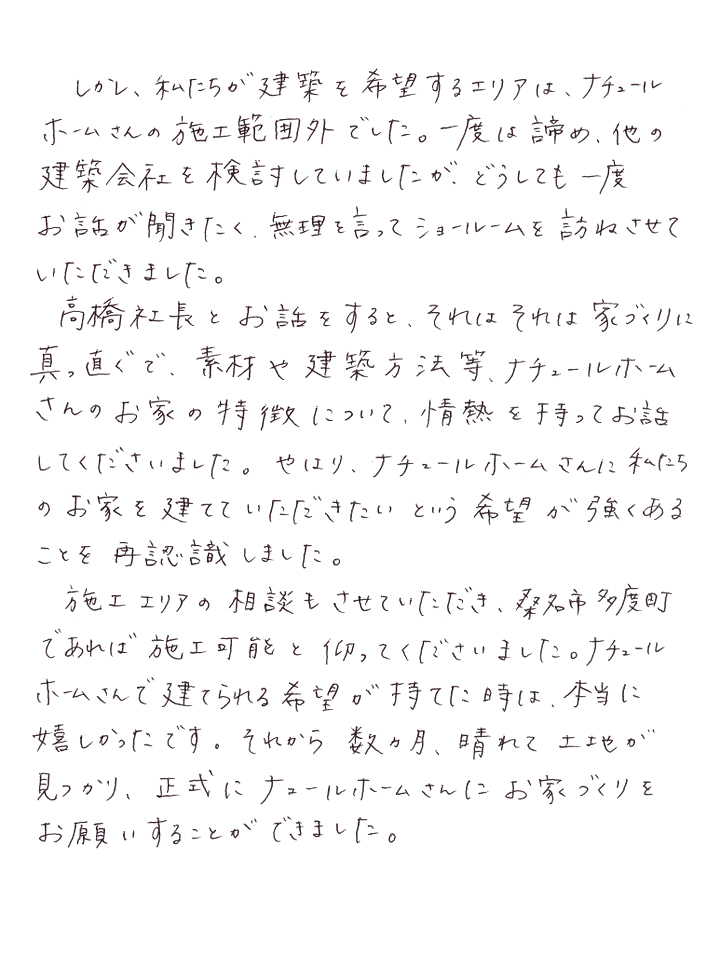 しかし、私たちが建築を希望するエリアは、ナチュール
ホームさんの施工範囲外でした。一度は諦め、他の
建築会社を検討していましたが、どうしても一度
お話が聞きたく、無理を言ってショールームを訪ねさせて
いただきました。
高橋社長とお話をすると、それはそれは家づくりに
真っ直ぐで、素材や建築方法等、ナチュールホーム
さんのお家の特徴について、情熱を持ってお話
してくださいました。やはり、ナチュールホームさんに私たち
のお家を建てていただきたいという希望が強くある
ことを再認識しました。
施工エリアの相談もさせていただき、桑名市多度町
であれば施工可能と仰ってくださいました。ナチュール
ホームさんで建てられる希望が持てた時は、本当に
嬉しかったです。それから数ヵ月、晴れて土地が
見つかり、正式にナュールホームさんにお家づくりを
お願いすることができました。